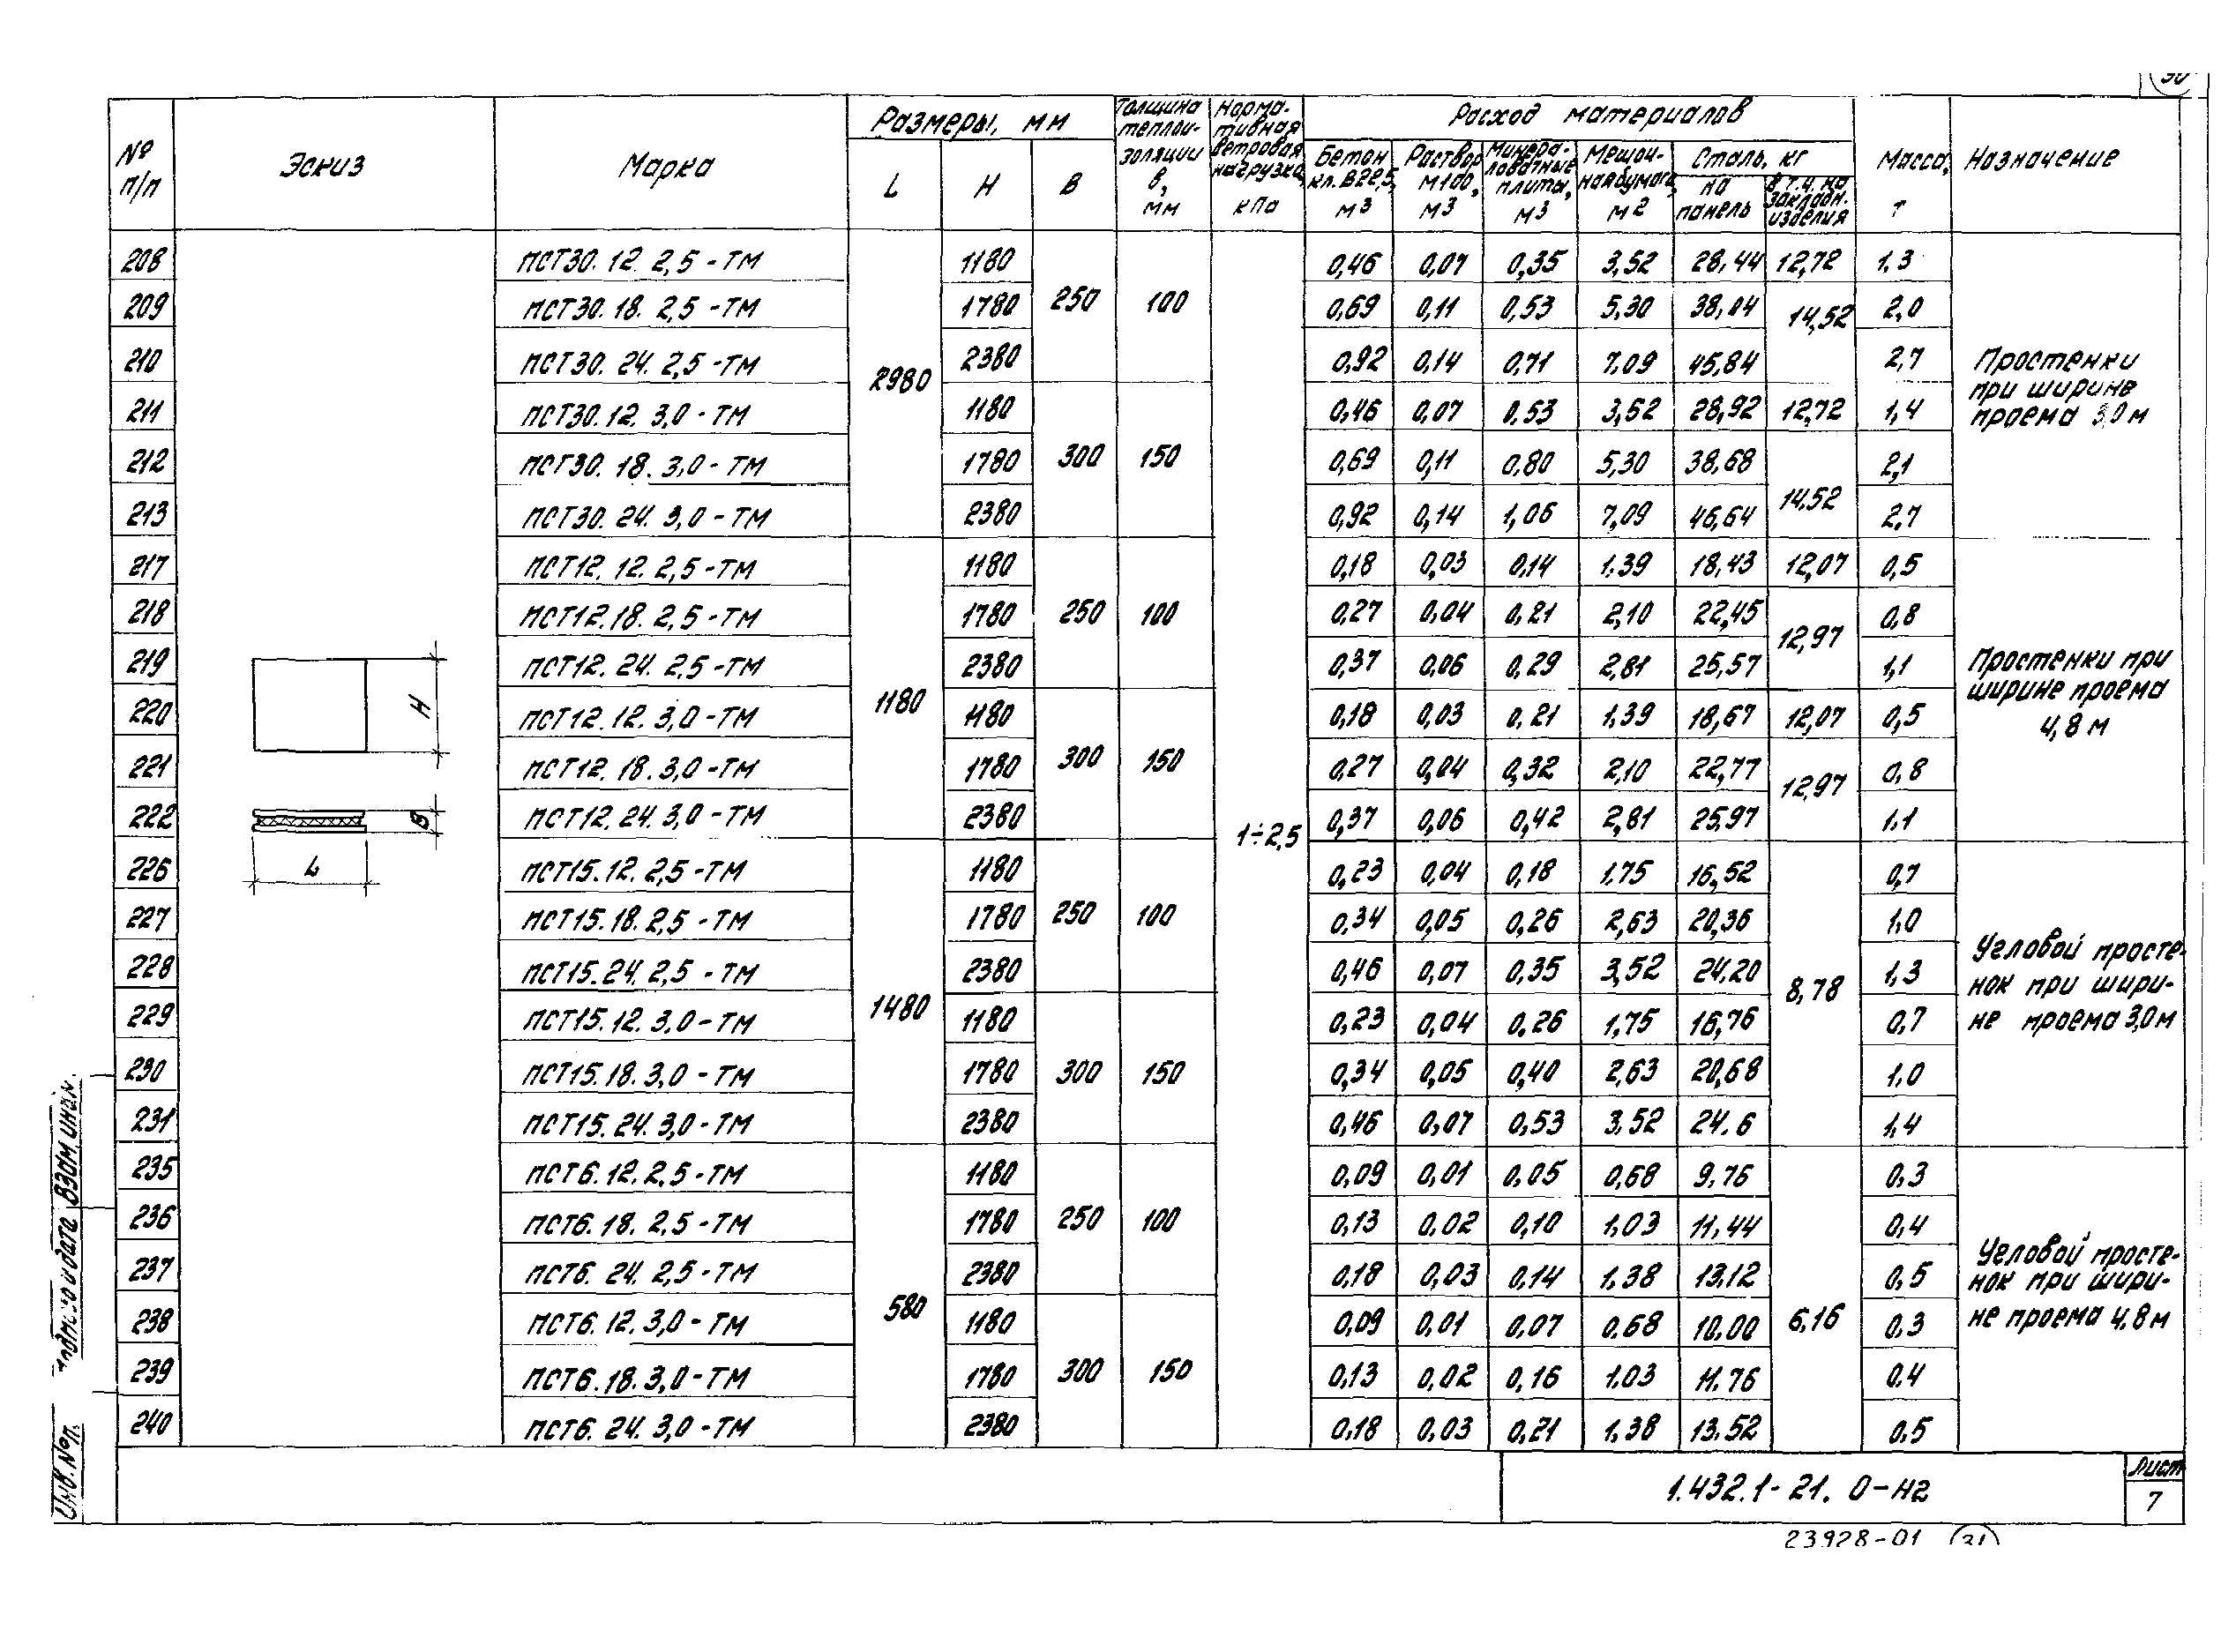 30
№ п/п
Эскиз
Марка
Размеры, мм
L
H
B
Толщина теплоизоляции в, мм
Нормативная ветровая нагрузка, кПа
Расход материалов
Бетон кл. В22,5, м3
Раствор М100, м3
Минераловатные плиты, м3
Мешочная бумага, м2
Сталь, кг
на панель
в т.ч. на закладн. изделия
Масса, т
Назначение
208 ПСТ30.12.2,5-ТМ 2980 1180 250 100 1÷2,5 0,46 0,07 0,35 3,52 28,44 12,72 1,3 Простенки при ширине проема 3,0 м
209 ПСТ30.18.2,5-ТМ 1780 0,69 0,11 0,53 5,30 38,04 14,52 2,0
210 ПСТ30.24.2,5-ТМ 2380 0,92 0,14 0,71 7,09 45,84 2,7
211 ПСТ30.12.3,0-ТМ 1180 300 150 0,46 0,07 0,53 3,52 28,92 12,72 1,4
212 ПСТ30.18.3,0-ТМ 1780 0,69 0,11 0,80 5,30 38,68 14,52 2,1
213 ПСТ30.24.3,0-ТМ 2380 0,92 0,14 1,06 7,09 46,64 2,7
217 ПСТ12.12.2,5-ТМ 1180 1180 250 100 0,18 0,03 0,14 1,39 18,43 12,07 0,5 Простенки при ширине проема 4,8 м
218 ПСТ12.18.2,5-ТМ 1780 0,27 0,04 0,21 2,10 22,45 12,97 0,8
219 ПСТ12.24.2,5-ТМ 2380 0,37 0,06 0,29 2,81 25,57 1,1
220 ПСТ12.12.3,0-ТМ 1180 300 150 0,18 0,03 0,21 1,39 18,67 12,07 0,5
221 ПСТ12.18.3,0-ТМ 1780 0,27 0,04 0,32 2,10 22,77 12,97 0,8
222 ПСТ12.24.3,0-ТМ 2380 0,37 0,06 0,42 2,81 25,97 1,1
226 ПСТ15.12.2,5-ТМ 1480 1180 250 100 0,23 0,04 0,18 1,75 16,52 8,78 0,7 Угловой простенок при ширине проема 3,0 м
227 ПСТ15.18.2,5-ТМ 1780 0,34 0,05 0,26 2,63 20,36 1,0
228 ПСТ15.24.2,5-ТМ 2380 0,46 0,07 0,35 3,52 24,20 1,3
229 ПСТ15.12.3,0-ТМ 1180 300 150 0,23 0,04 0,26 1,75 16,76 0,7
230 ПСТ15.18.3,0-ТМ 1780 0,34 0,05 0,40 2,63 20,68 1,0
231 ПСТ15.24.3,0-ТМ 2380 0,46 0,07 0,53 3,52 24.6 1,4
235 ПСТ6.12.2,5-ТМ 580 1180 250 100 0,09 0,01 0,05 0,68 9,76 6,16 0,3 Угловой простенок при ширине проема 4,8 м
236 ПСТ6.18.2,5-ТМ 1780 0,13 0,02 0,10 1,03 11,44 0,4
237 ПСТ6.24.2,5-ТМ 2380 0,18 0,03 0,14 1,38 13,12 0,5
238 ПСТ6.12.3,0-ТМ 1180 300 150 0,09 0,01 0,07 0,68 10,00 0,3
239 ПСТ6.18.3,0-ТМ 1780 0,13 0,02 0,16 1,03 11,76 0,4
240 ПСТ6.24.3,0-ТМ 2380 0,18 0,03 0,21 1,38 13,52 0,5
H
B
L
Взам. инв.
Подпись и дата
Инв. № п.
1.432.1-21. 0-Н2
Лист
7
23928-01 31